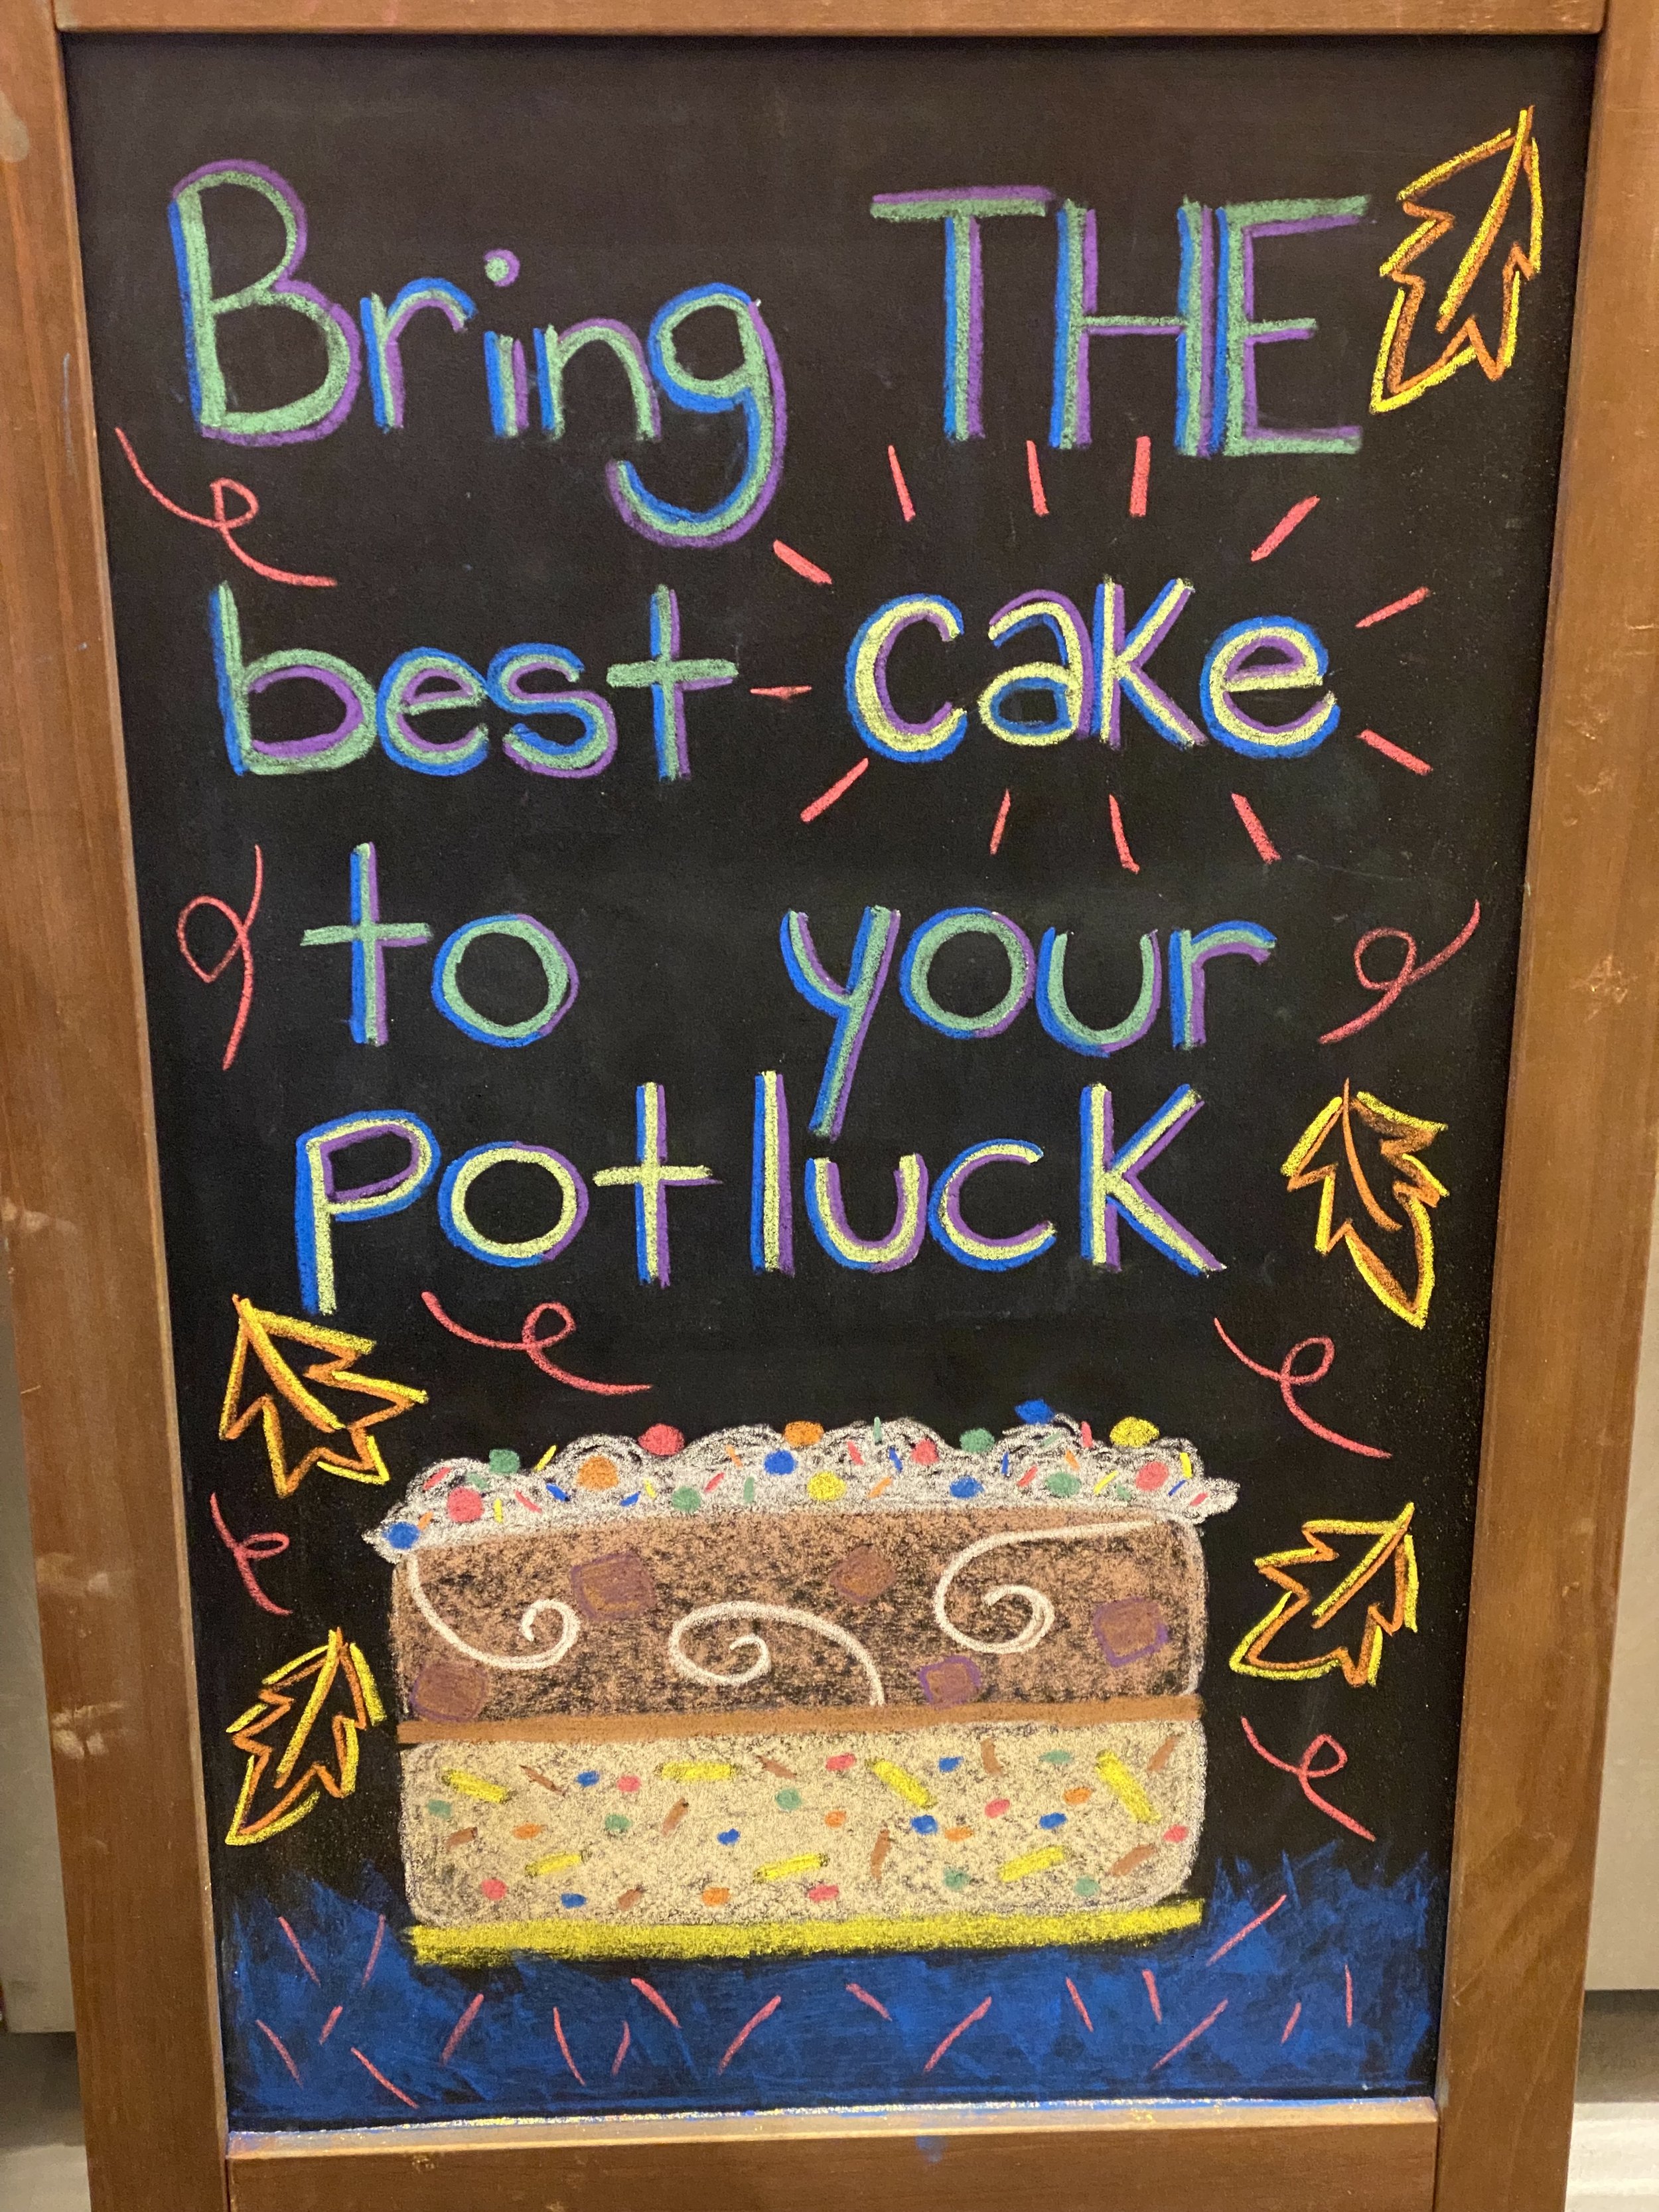 Bring THE
best cake
to your
Potluck